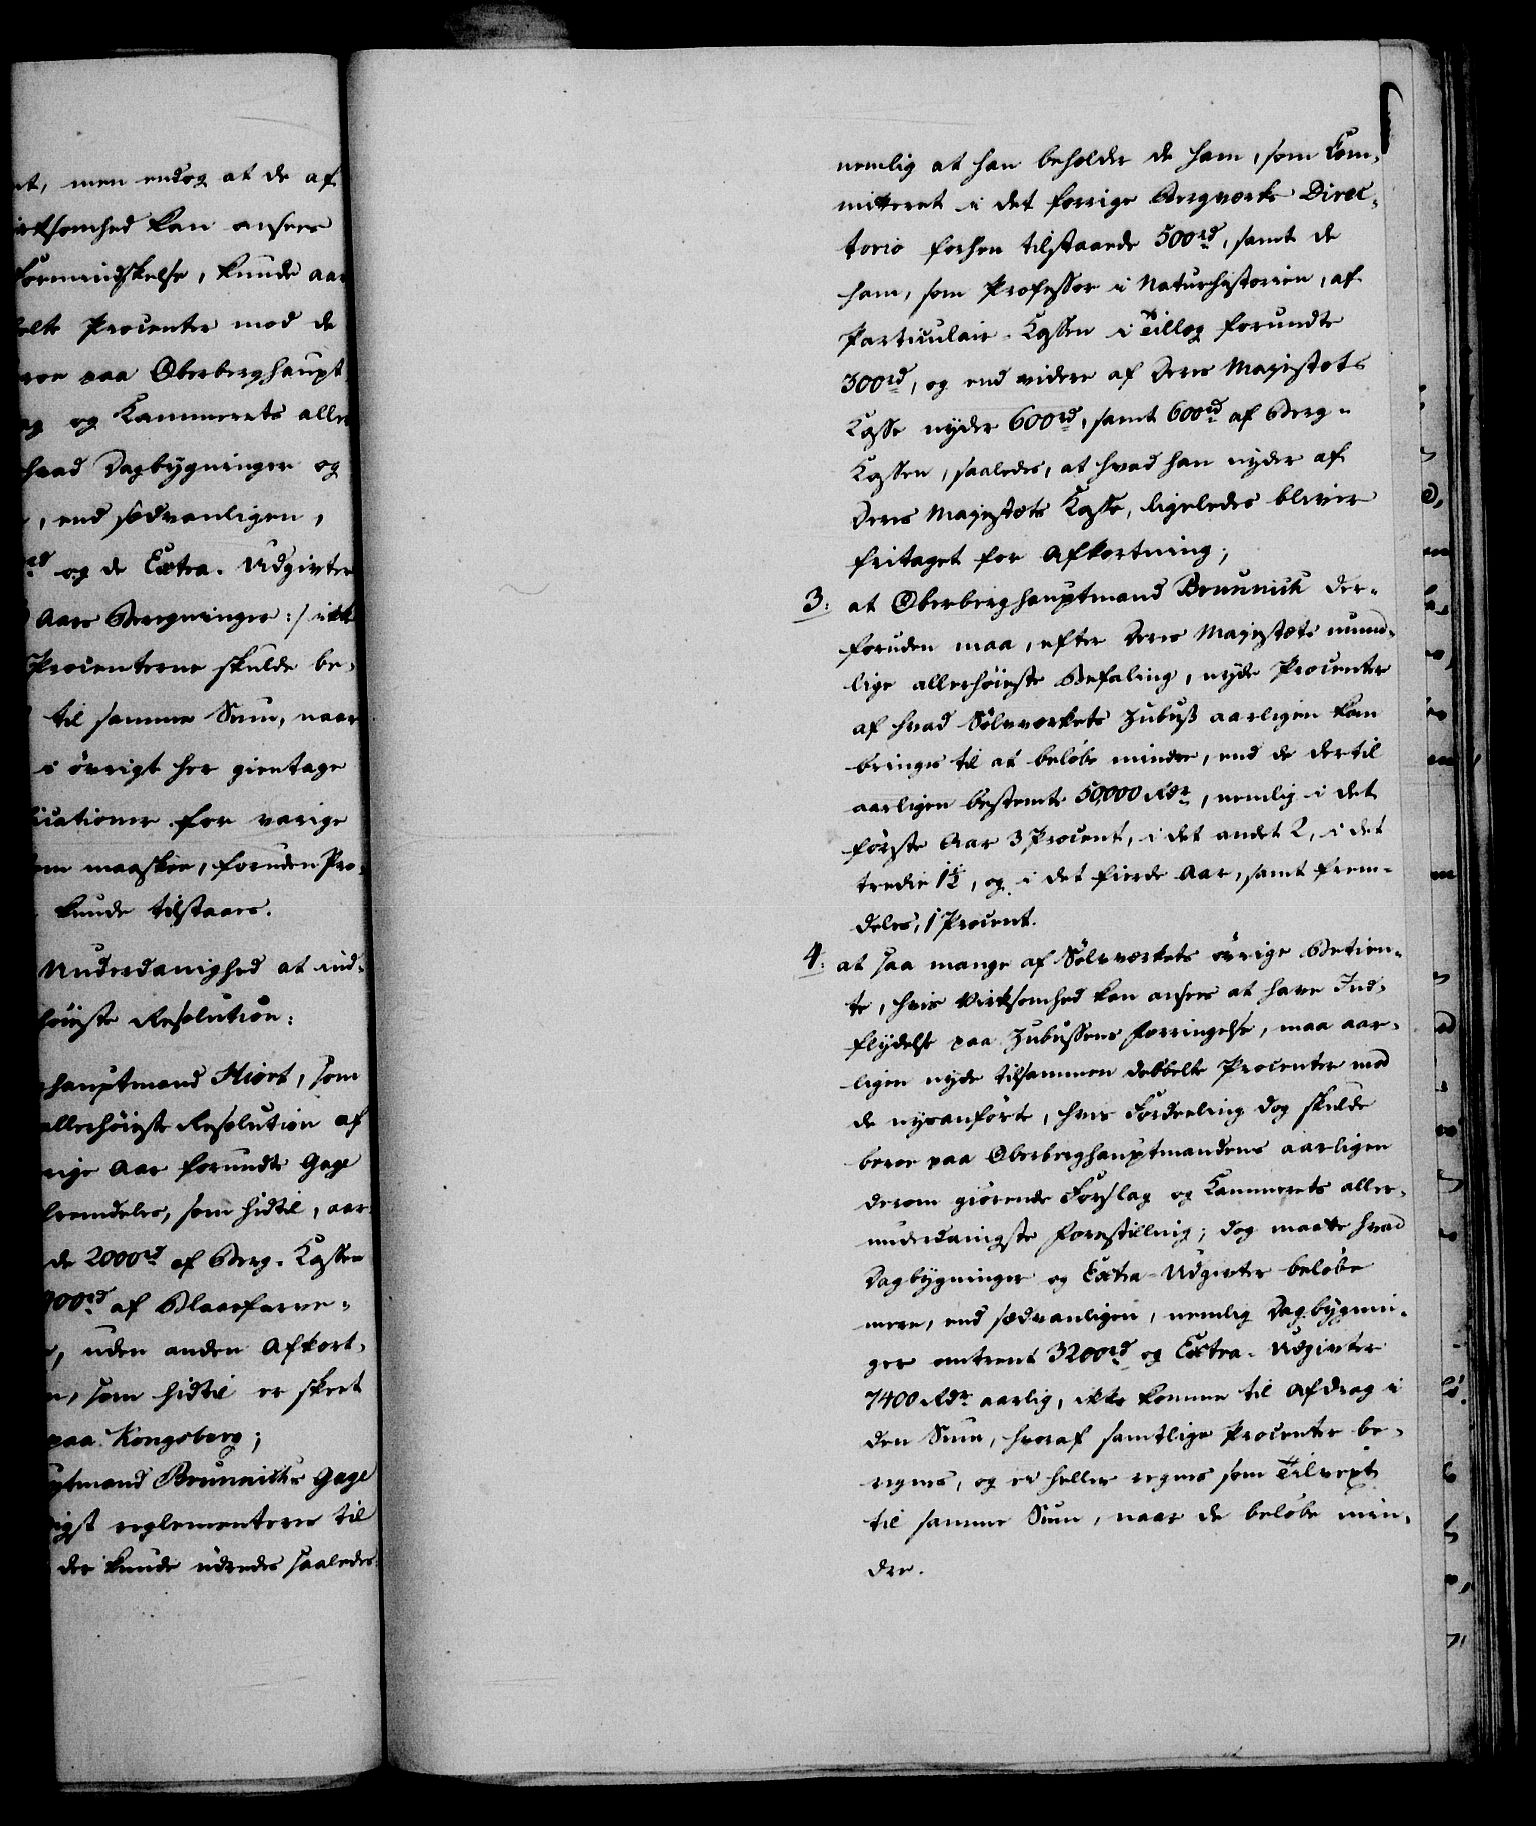 et, men endog at de af
irksomhed kan ansees
Formindskelse, kunde aar
belte Procenter mod de
roe paa Oberberghaupt
ag og Kammerets aller
hvad Dagbygninger og
, end sædvanligen,
rd og de Extra-Udgivter
Aars Beregninger :/ ikke
Procenterne skulde be-
til samme Sum, naar
i övrigt her gientage
ficationer for varige
em maaskee, foruden Pro-
kunde tilstaaes.
Underdanighed at ind-
höieste Resolution:
hauptmand Hiort, som
allerhöieste Resolution af
rige Aar forundte Gage
fremdeles, som hidtil, aar
de 2000rd af Berg-Kassen
00rd af Blaafarve-
, uden anden Afkort-
n, som hidtil er skeet
paa Kongsberg;
ptmand Brunnichs Gage
igst reglementeres til
der kunde udredes saaledes
nemlig at han beholder de ham, som Com-
mitteret i det forrige Bergverks Direc-
torio forhen tilstaaede 500rd, samt de
ham, som Professor i Naturhistorien, af
Particulair-Kassen i Tillæg forundte
300rd, og end videre af Deres Majestæts
Kasse nyder 600rd, samt 600rd af Berg-
Kassen, saaledes, at hvad han nyder af
Deres Majestæts Kasse, ligeledes bliver
fritaget for Afkortning;
3: at Oberberghauptmand Brunnich der-
foruden maa, efter Deres Majestæts mund-
lige allerhöieste Befaling, nyde Procenter
af hvad Sölvverkets Zubuß aarligen kan
bringes til at belöbe mindre, end de dertil
aarligen bestemte 50,000 Rdr, nemlig i det
förste Aar 3 Procent, i det andet 2, i det
tredie 1½, og i det fierde Aar, samt frem-
deles, 1 Procent.
4: at saa mange af Sölvverkets övrige Betien-
te, hvis Virksomhed kan ansees at have Ind-
flydelse paa Zubussens Forringelse, maa aar-
ligen nyde tilsammen dobbelte Procenter mod
de nysanförte, hvis Fordeeling dog skulde
beroe paa Oberberghauptmandens aarligen
derom giörende Forslag og Kammerets aller-
underdanigste Forestilling; dog maatte hvad
Dagbygninger og Extra-Udgivter belöbe
mere, end sædvanligen, nemlig Dagbygnin-
ger omtrent 3200rd og Extra-Udgivter
7400 Rdr aarlig, ikke komme til Afdrag i
den Sum, hvoraf samtlige Procenter be-
regnes, og ei heller regnes som Tilvext
til samme Sum, naar de belöbe min-
dre.